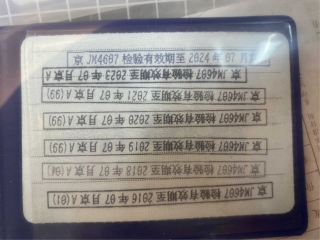 京JM4607检验有效期至2024年07月京
京JM4607检验有效期至2023年07月京A
京JM4607检验有效期至2021年07月京A(99)
京JM4607检验有效期至2020年07月京A(99)
京JM4607检验有效期至2019年07月京A(99)
京JM4607检验有效期至2018年07月京A
京JM4607检验有效期至2016年07月京A(01)